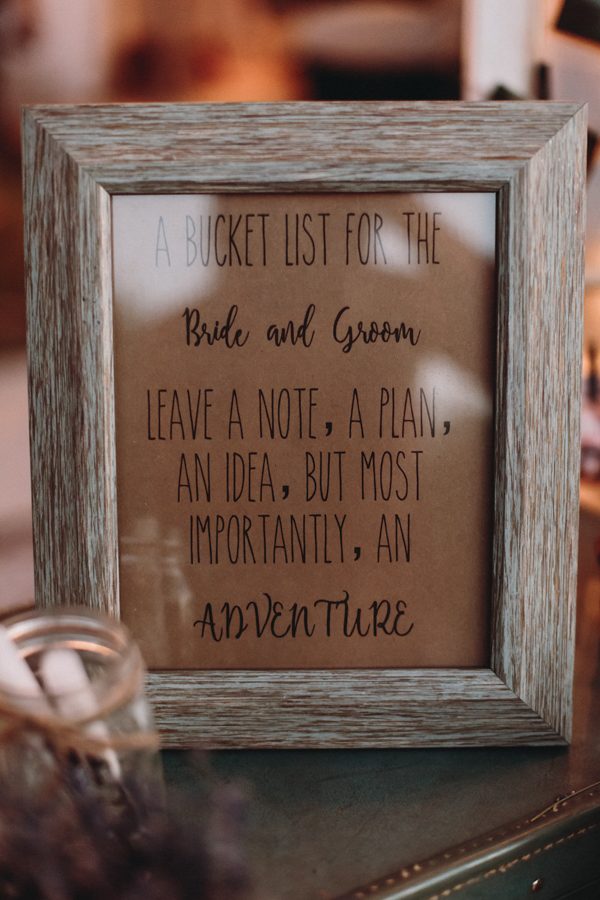 A BUCKET LIST FOR THE
Bride and Groom
LEAVE A NOTE, A PLAN,
AN IDEA, BUT MOST
IMPORTANTLY, AN
ADVENTURE